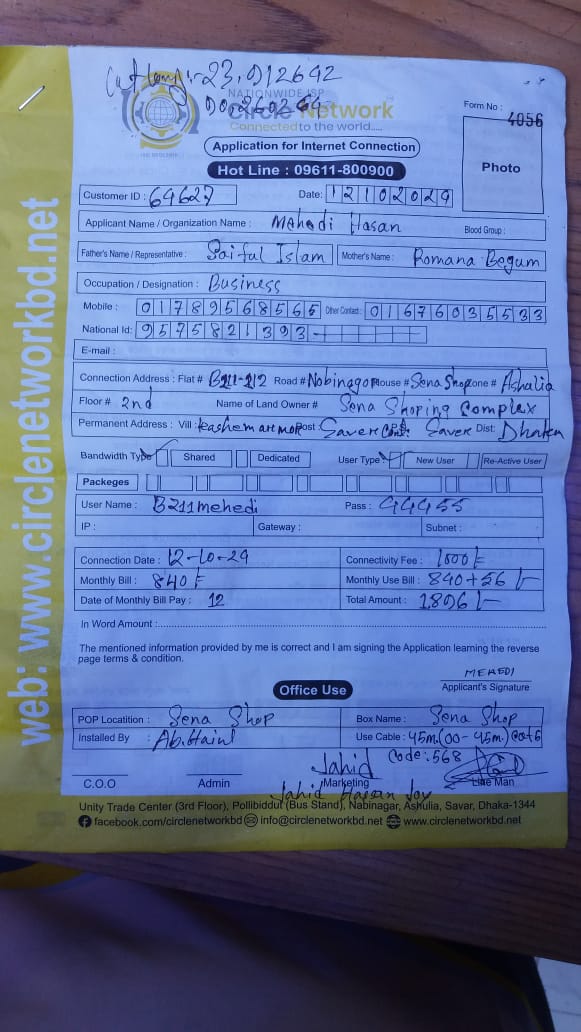 Lat Long:-23.912642
90.260264
NATIONWIDE ISP
Circle Network
Connected to the world.....
Form No :
4056
Application for Internet Connection
Hot Line : 09611-800900
Photo
Customer ID : 64627
Date: 12102024
Applicant Name / Organization Name : Mehedi Hasan
Blood Group :
Father's Name / Representative : Saiful Islam
Mother's Name : Romana Begum
Occupation / Designation : Business
Mobile : 01789568565
Other Contact : 01676035533
National Id: 9575821393
E-mail :
Connection Address : Flat # B211-212 Road # Nobinagor House # Sena Shop Zone # Ashulia
Floor # 2nd Name of Land Owner # Sena Shoping Complex
Permanent Address : Vill : Post : Saver Cant: Saver Dist: Dhaka
Bandwidth Type Shared Dedicated User Type New User Re-Active User
Packeges
User Name : B211mehedi Pass : 44455
IP : Gateway : Subnet :
Connection Date : 12-10-24 Connectivity Fee : 1000/-
Monthly Bill : 840/- Monthly Use Bill : 840+56/-
Date of Monthly Bill Pay : 12 Total Amount : 1896/-
In Word Amount :
The mentioned information provided by me is correct and I am signing the Application learning the reverse
page terms & condition.
MEHEDI
Applicant's Signature
Office Use
POP Locatition : Sena Shop Box Name : Sena Shop
Installed By : Use Cable : 45m.(00-45m) cat6
Code:568
Jahid
C.O.O Admin Marketing Line Man
Jahid Hasan Joy
Unity Trade Center (3rd Floor), Pollibiddut (Bus Stand), Nabinagar, Ashulia, Savar, Dhaka-1344
facebook.com/circlenetworkbd info@circlenetworkbd.net www.circlenetworkbd.net
web: www.circlenetworkbd.net